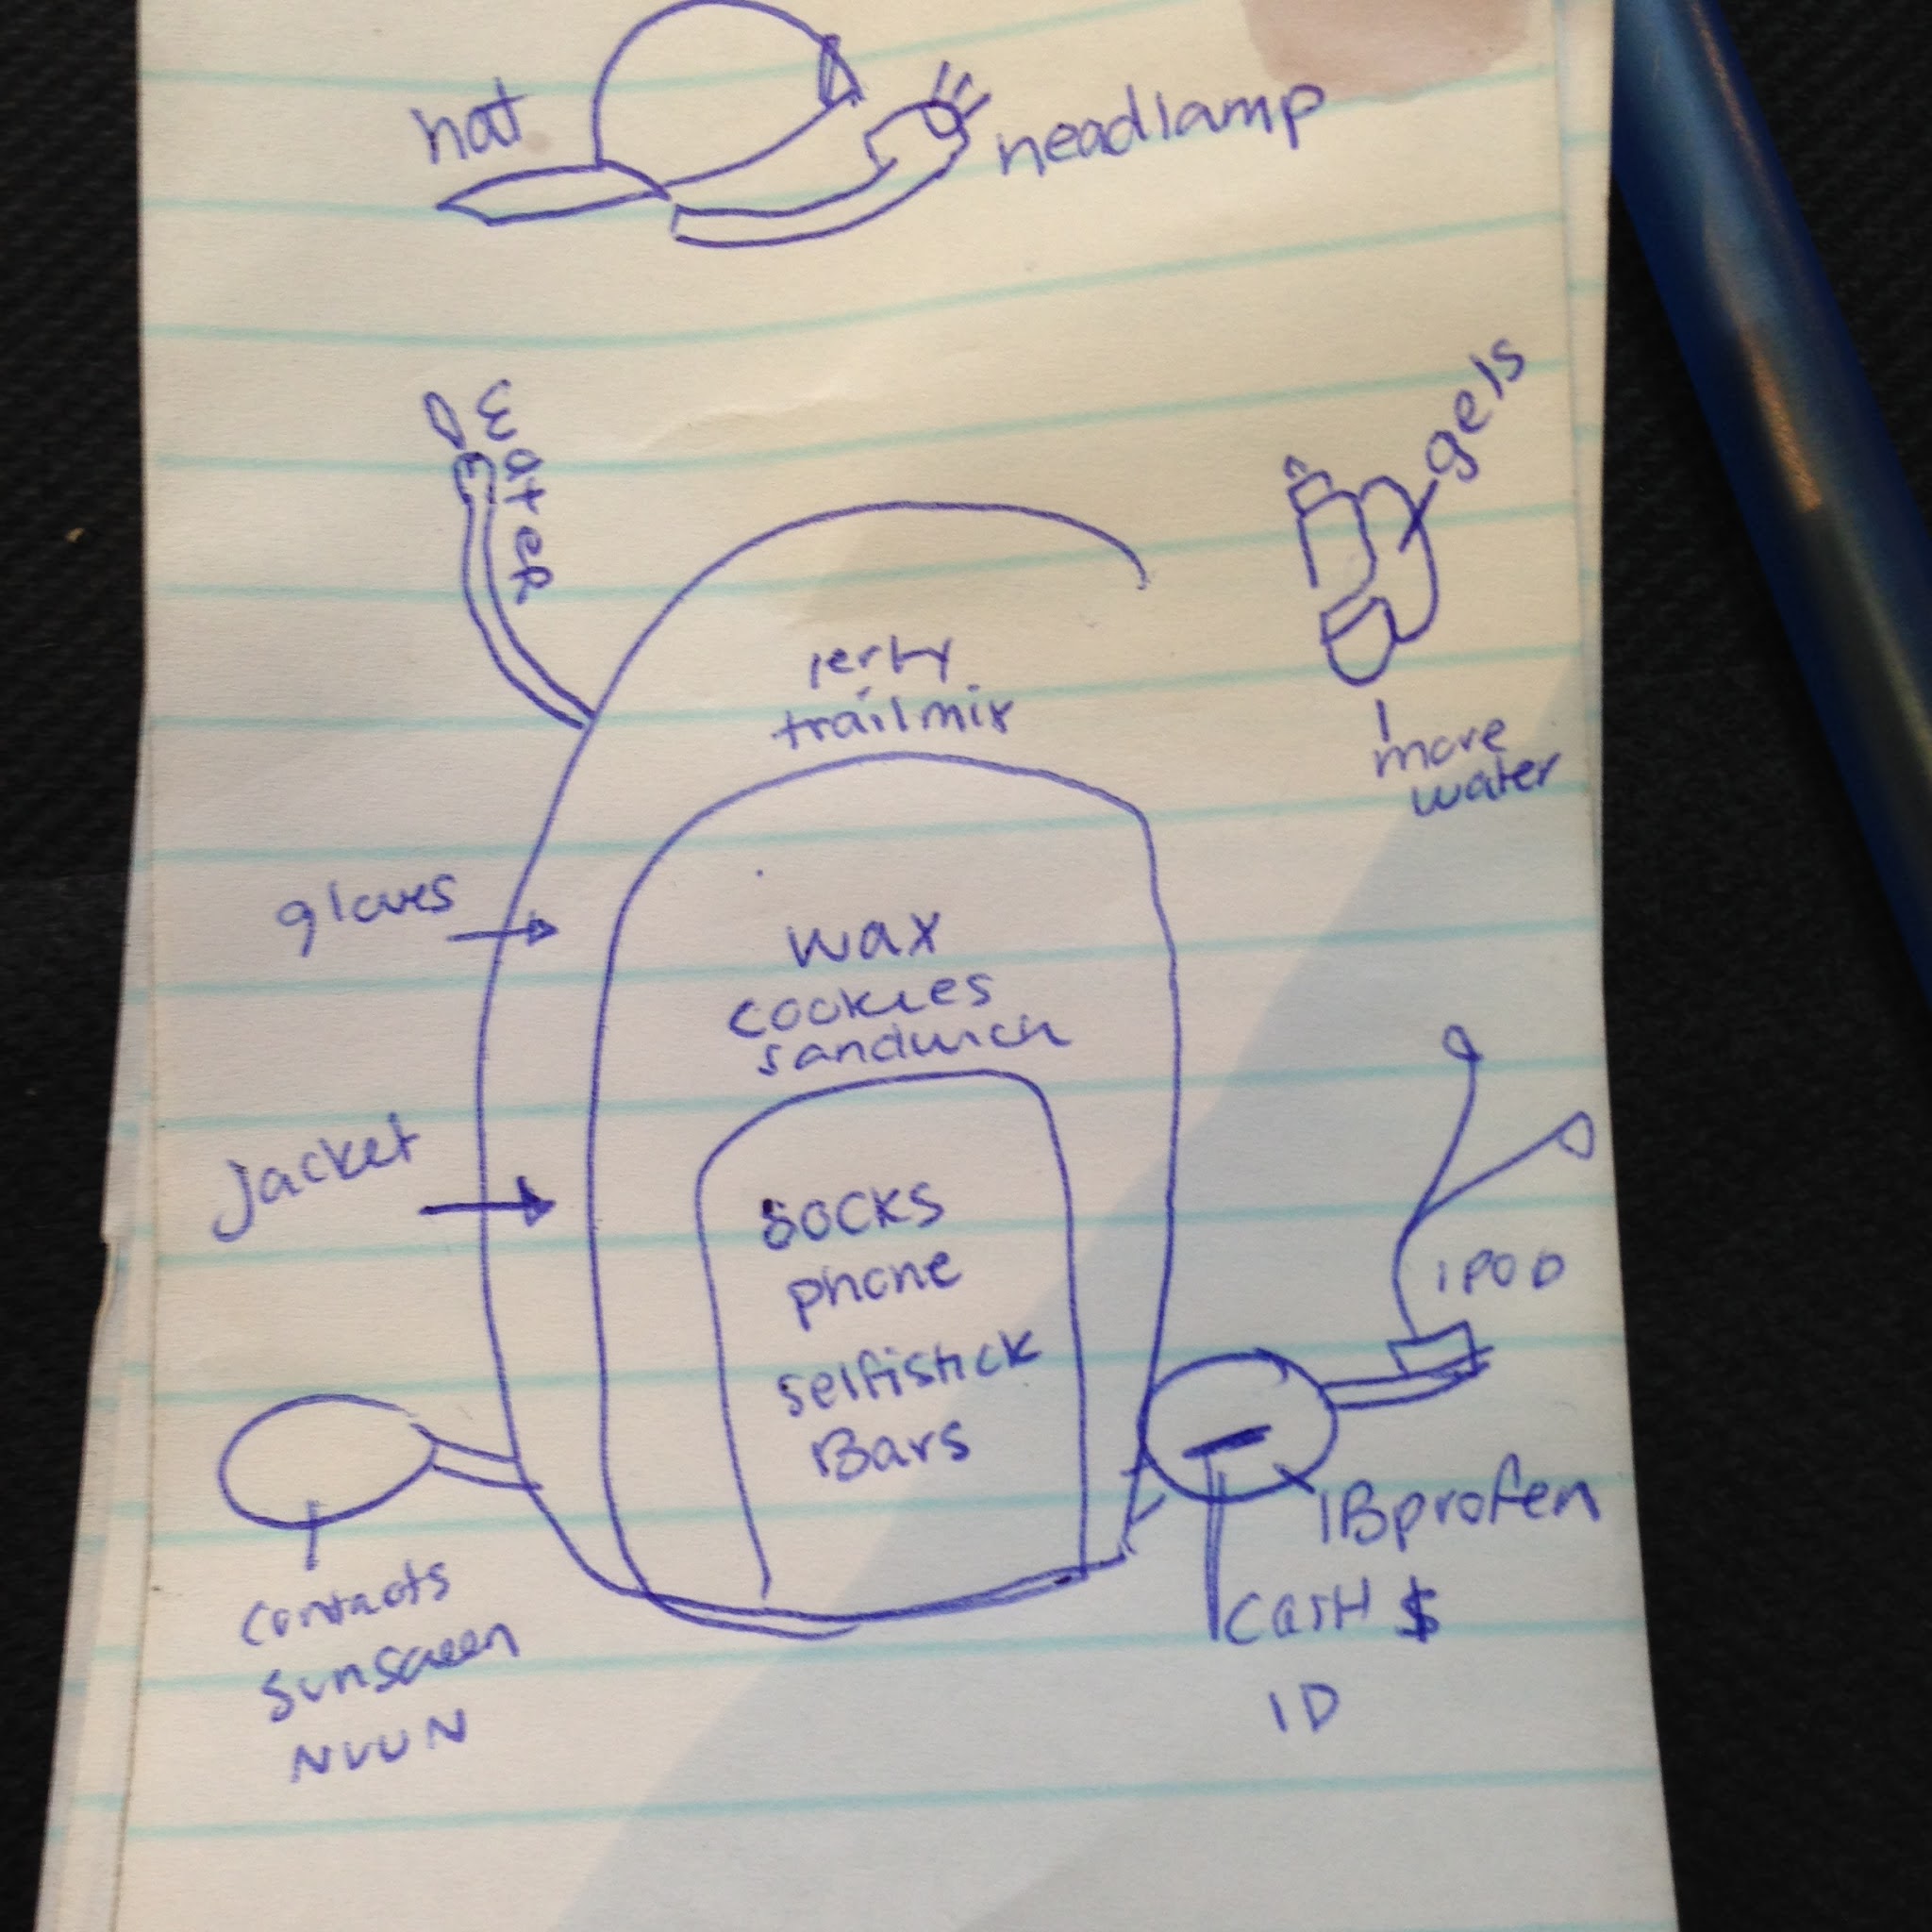 hat
headlamp
water
gels
1
more
water
jerky
trailmix
gloves
wax
cookies
sandwich
Jacket
socks
phone
selfistick
Bars
iPOD
IBprofen
CasH $
ID
contacts
sunscreen
NUUN